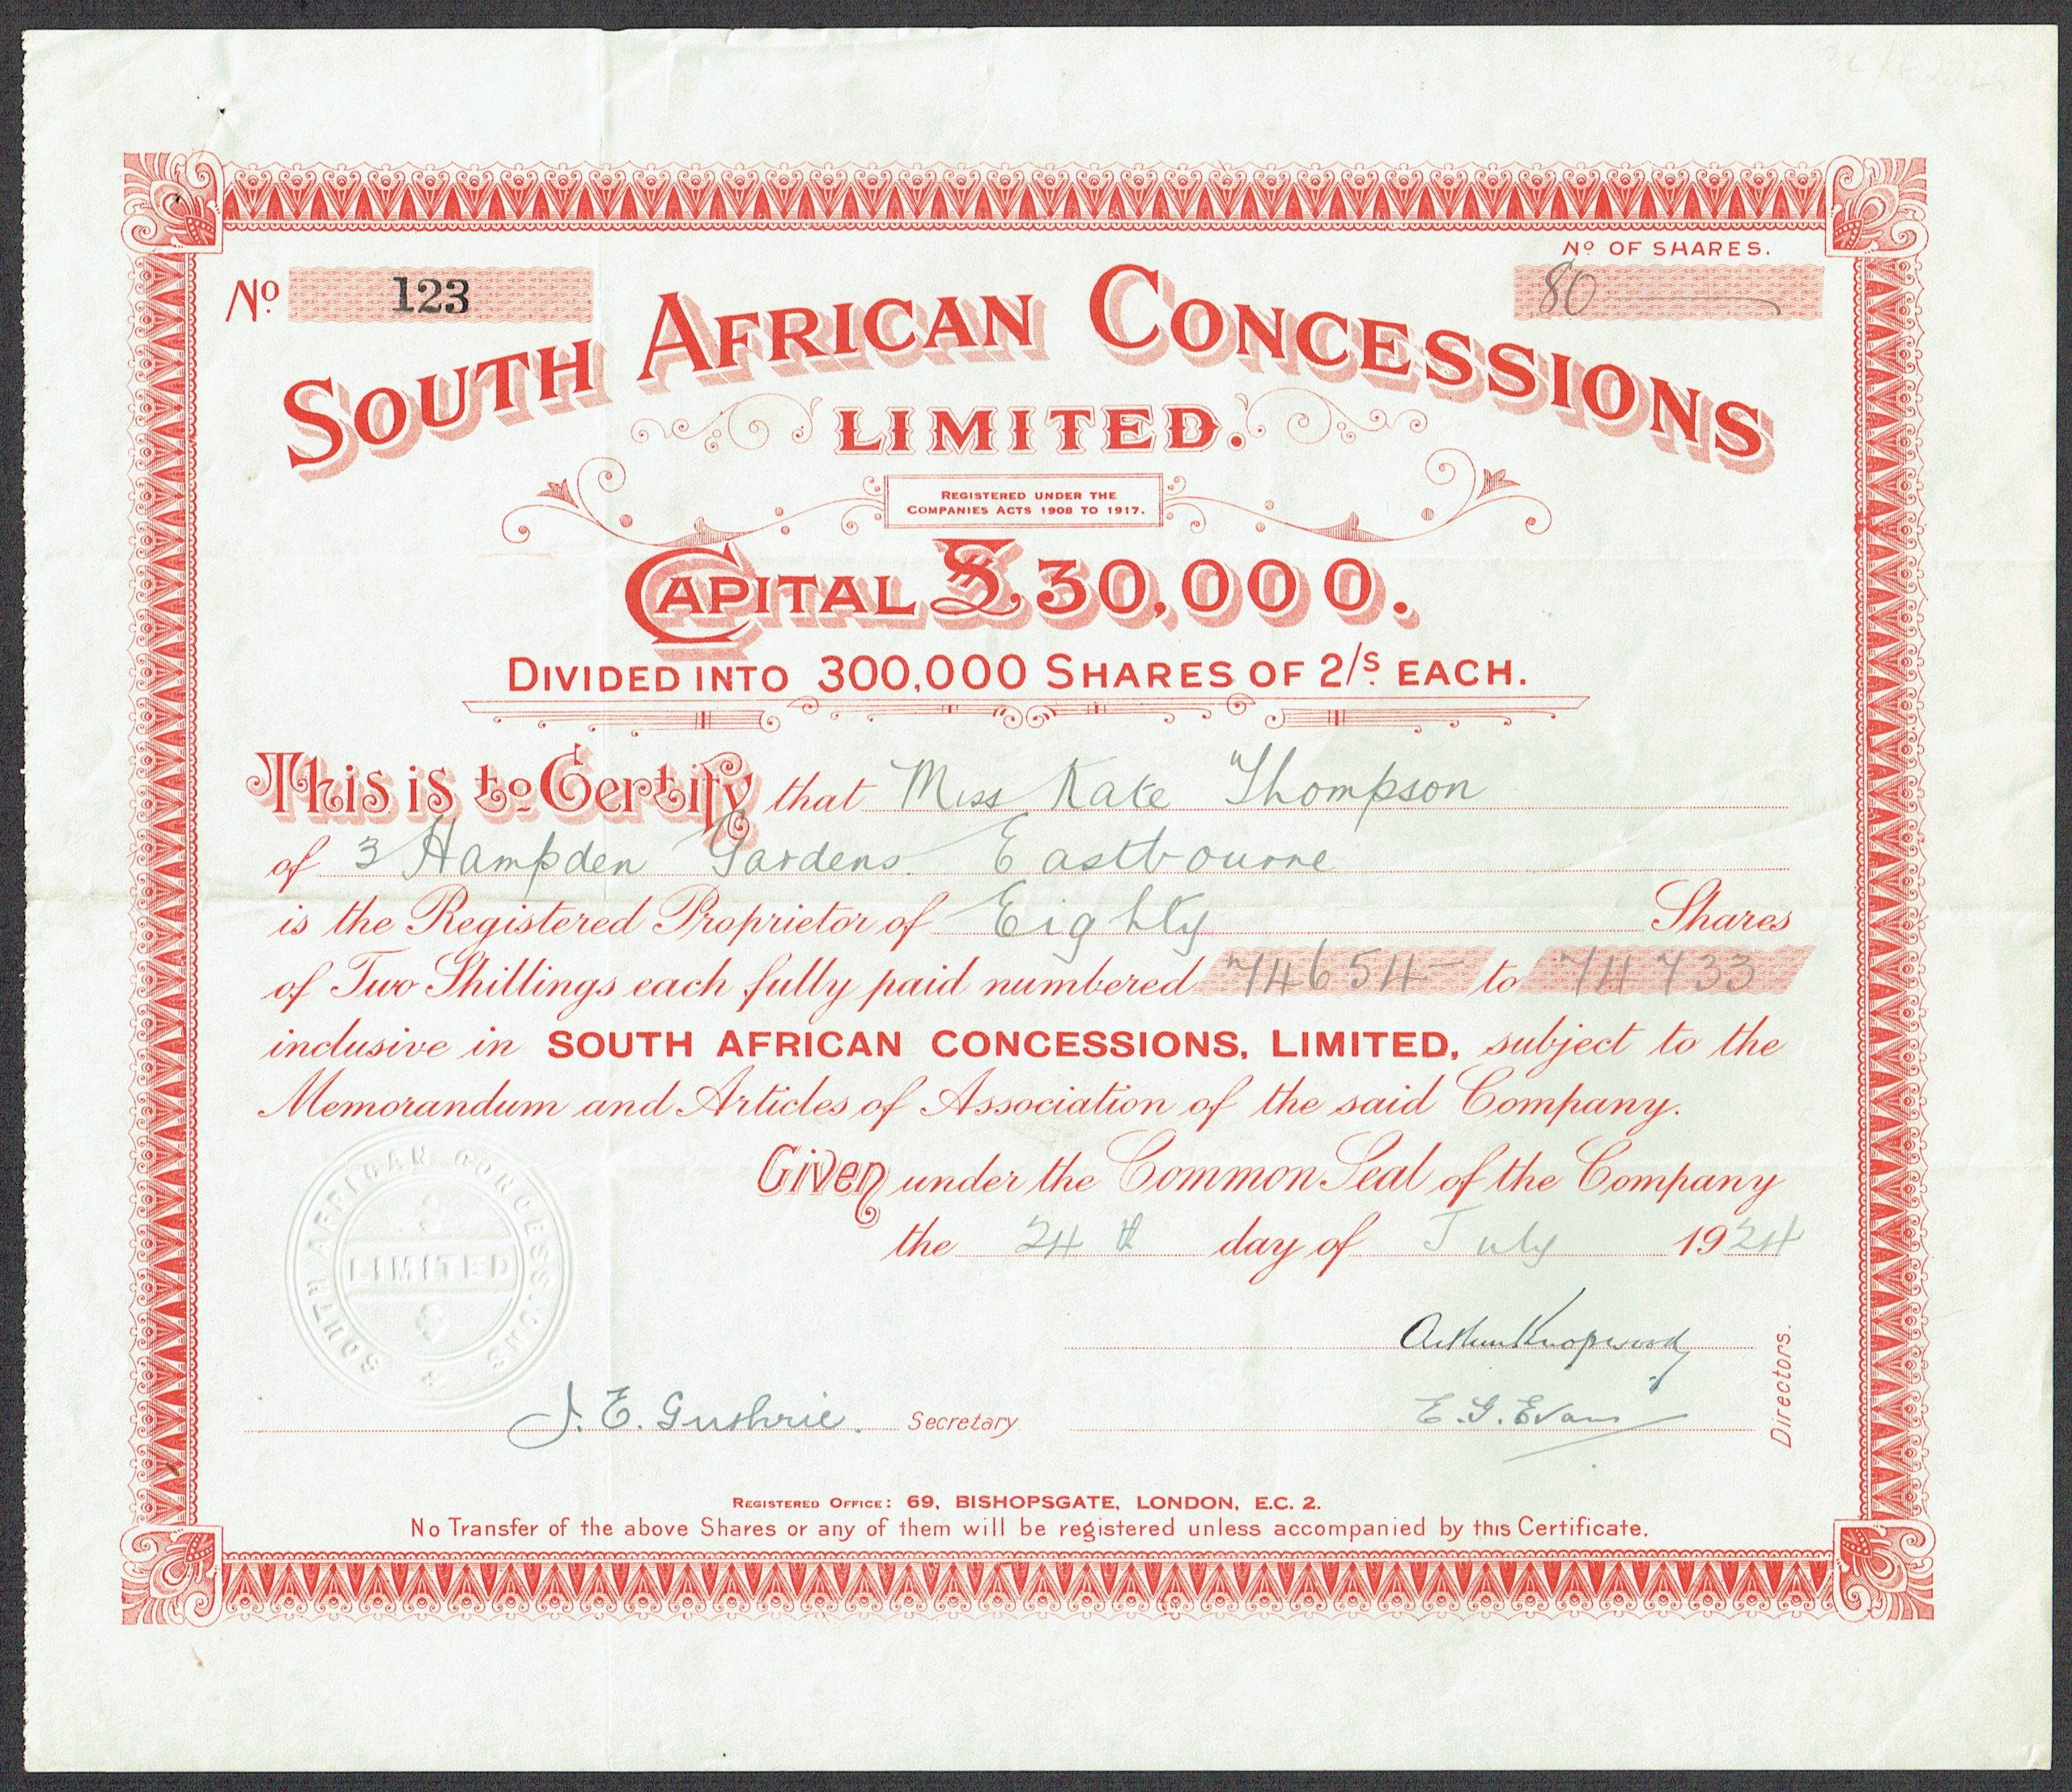 Nº OF SHARES.
Nº 123
80
SOUTH AFRICAN CONCESSIONS
LIMITED.
REGISTERED UNDER THE
COMPANIES ACTS 1908 TO 1917.
CAPITAL £30,000.
DIVIDED INTO 300,000 SHARES OF 2/s EACH.
This is to Certify that Miss Kate Thompson
of 3 Hampden Gardens Eastbourne
is the Registered Proprietor of Eighty Shares
of Two Shillings each fully paid numbered 74654 to 74733
inclusive in SOUTH AFRICAN CONCESSIONS, LIMITED, subject to the
Memorandum and Articles of Association of the said Company.
Given under the Common Seal of the Company
the 24th day of July 1924
SOUTH AFRICAN CONCESSIONS
LIMITED
Arthur Knopwood
J. E. Guthrie. Secretary
E. G. Evans
Directors.
REGISTERED OFFICE: 69, BISHOPSGATE, LONDON, E.C. 2.
No Transfer of the above Shares or any of them will be registered unless accompanied by this Certificate.